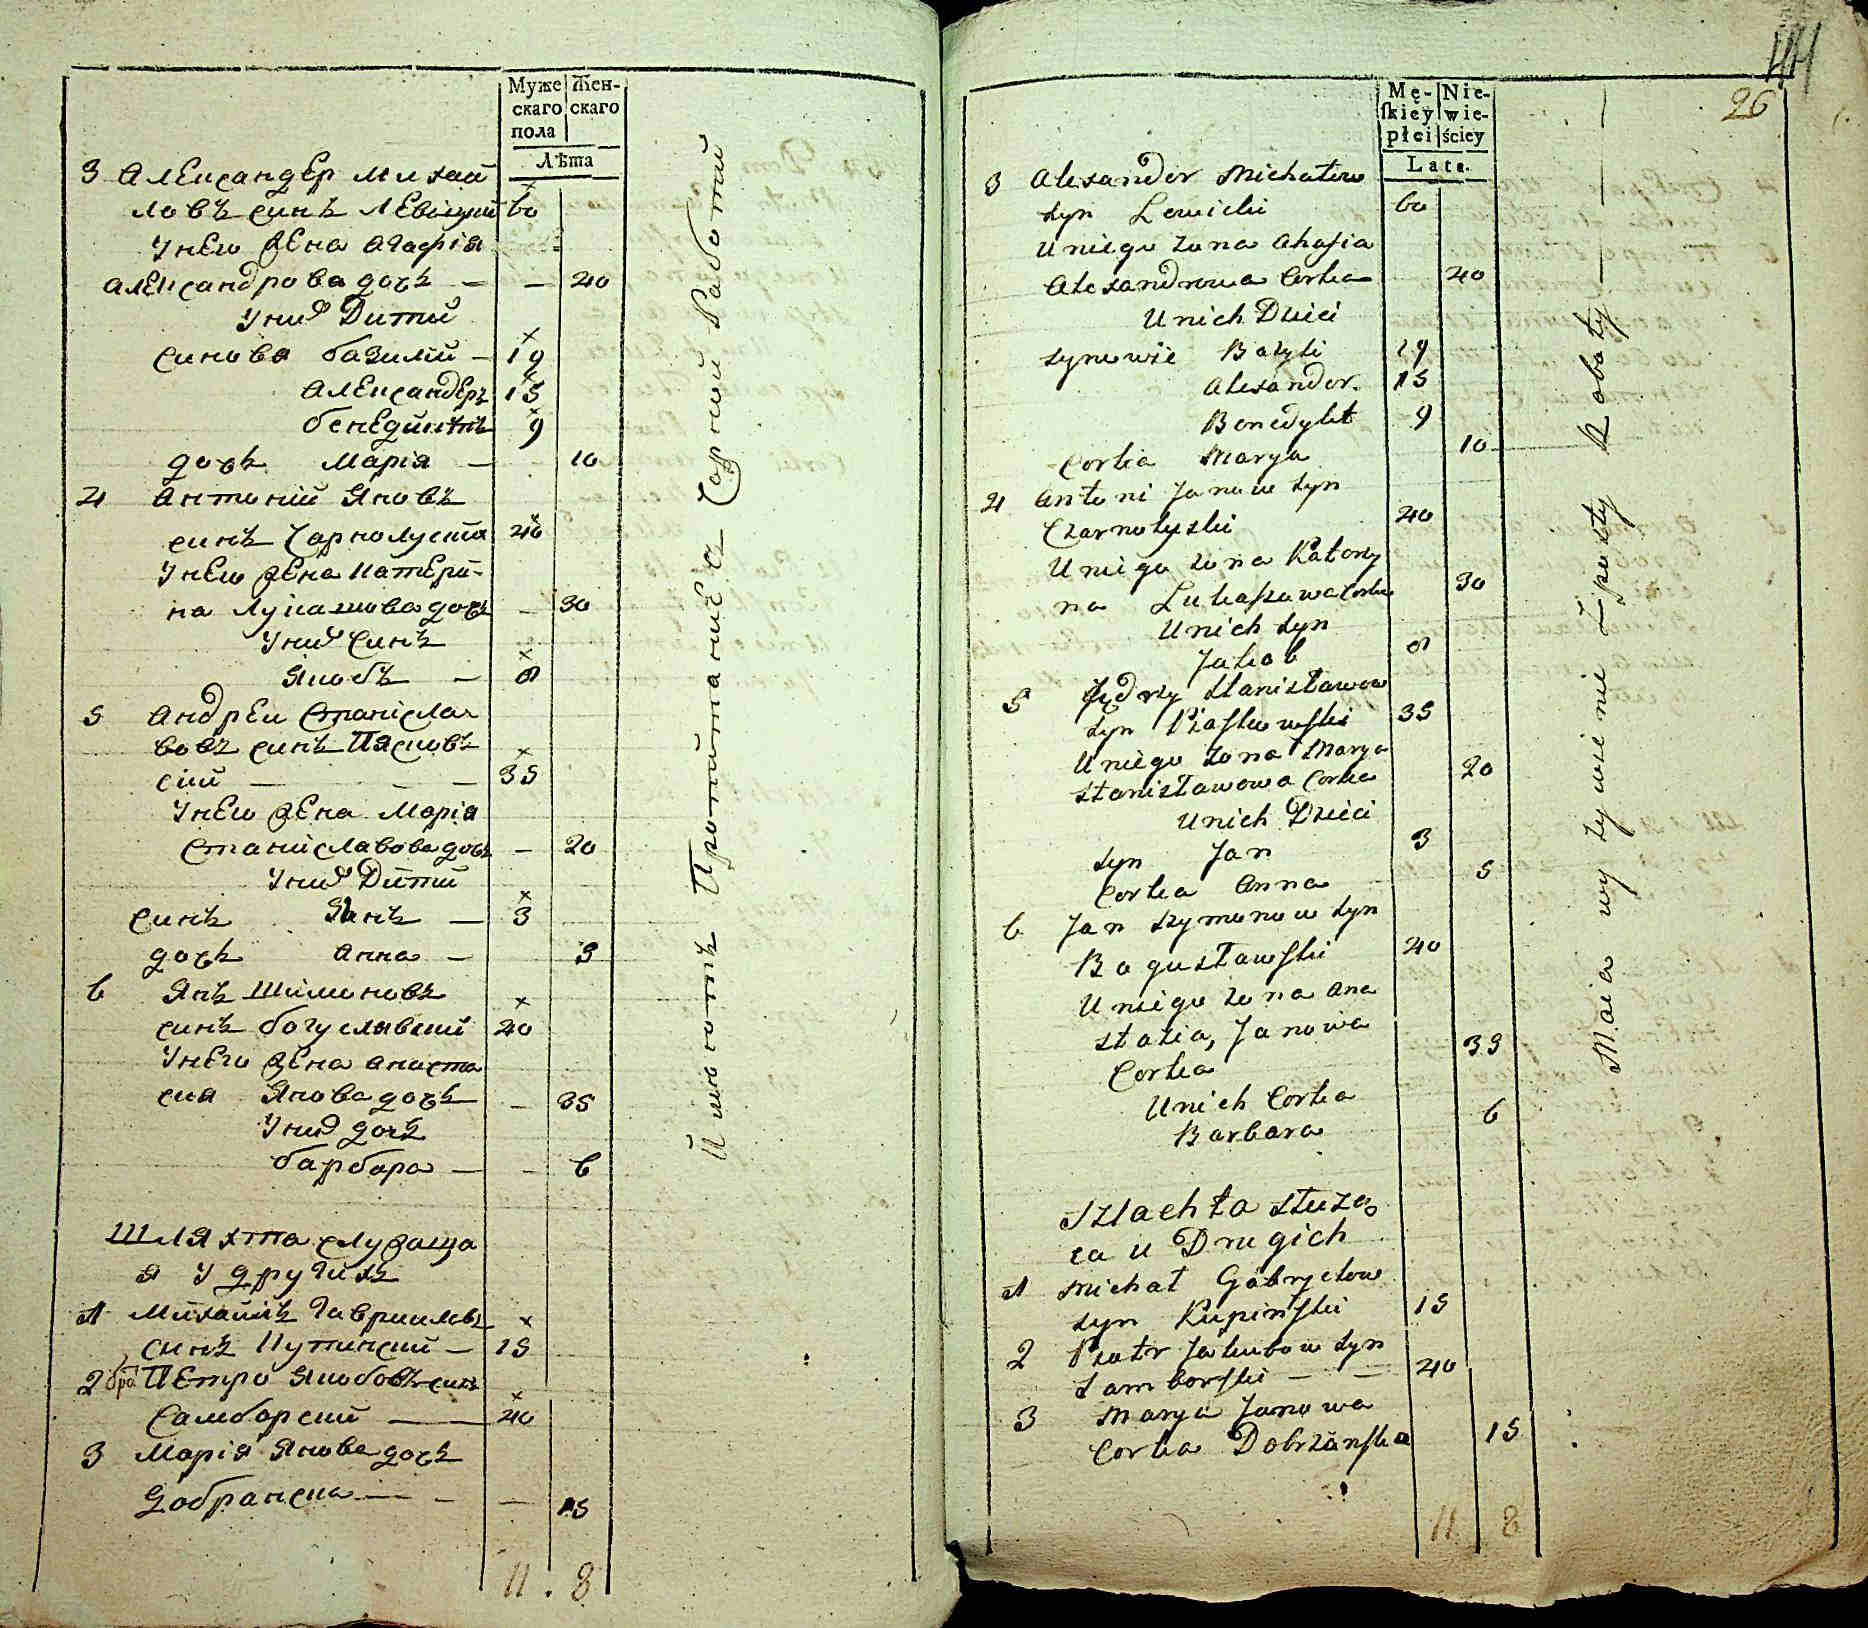 Муже Жен-
скаго скаго
пола
Лѣта
3 Александер Михай
ловъ синъ Левіцкий 60
У него жена Агафія
Александрова дочь — — 20
У них Дитий
синове базилий — 19
Александеръ 15
бенедиктъ 9
дочь Марія — 10
4 Антоний Яновъ
синъ Чарнолуский 40
У него жена Катери-
на Лукашова дочь — 30
У них синъ
Якобъ — 8
5 Андреи Станісла
вовъ синъ Пясковъ
ский — — — 35
У него жена Марія
Станіславова дочь — 20
У них Дитий
синъ Янъ — 3
дочь Анна — 5
6 Янъ Шимоновъ
синъ богуславский 40
У него жена Анаста
сия Янова дочь — 35
У них дочь
барбара — — 6
Шляхта служаща
я У других
1 Михайлъ Гавриловъ
синъ Купинский — 15
2 Петро Якобовъ синъ
Самборский — 40
3 Марія Янова дочь
Добранска — — — 15
11 . 8
Имеютъ Пропитание с Чорной Работы
26
Mę- Nie-
skiey wie-
płci ściey
Lata.
3 Alexander Michałow
syn Lewicki 60
U niego zona Ahafia
Alexandrowa Corka 20
U nich Dzieci
synowie Bazyli 19
Alexander 15
Benedykt 9
Corka Marya 10
4 Antoni Janow syn
Czarnołuski 40
U niego zona Katerzy
na Łukaszowa Corka 30
U nich syn
Jakob 8
5 Jędrzy Stanisławow
syn Piaskowski 35
U niego zona Marya
Stanisławowa Corka 20
U nich Dzieci
syn Jan 3
Corka Anna 5
6 Jan Szymonow syn
Bogusławski 40
U niego zona Ana
stazia, Janowa 35
Corka
U nich Corka
Barbara 6
Szlachta służą
ca u Drugich
1 Michał Gabryelow
syn Kupinski 15
2 Piotr Jakubow syn
Samborski — — 40
3 Marya Janowa
Corka Dobrzanska 15
11 8
Maią wyżywienie z prosty Roboty